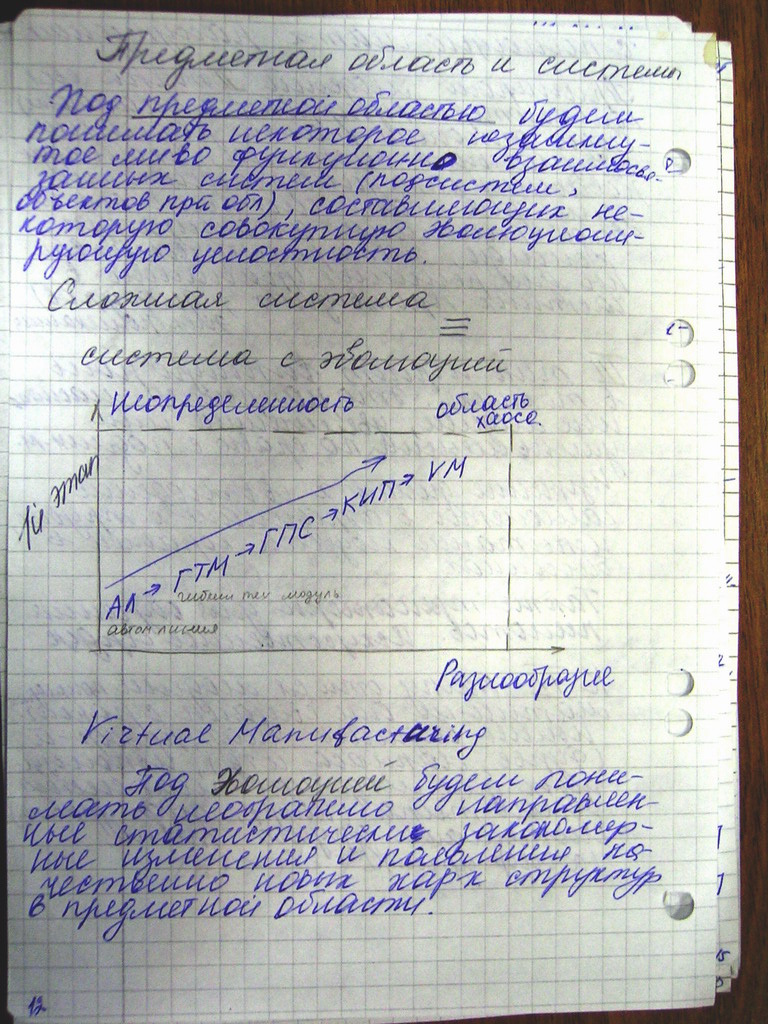 Предметная область и системы
Под предметной областью будем
понимать некоторое незамкну-
тое мн-во функционно взаимосвя-
занных систем (подсистем,
объектов пр обл), составляющих не-
которую совокупную эволюциони-
рующую целостность.
Сложная система
≡
система с эволюцией
Неопределенность
область
хаоса.
1й этап
АЛ → ГТМ → ГПС → КИП → VM
гибкий тех модуль
автом линия
Разнообразие
Virtual Manufacturing
Под Эволюцией будем пони-
мать необратимо направлен-
ные статистически закономер-
ные изменения и появления ка-
чественно новых харх структур
в предметной области.
12